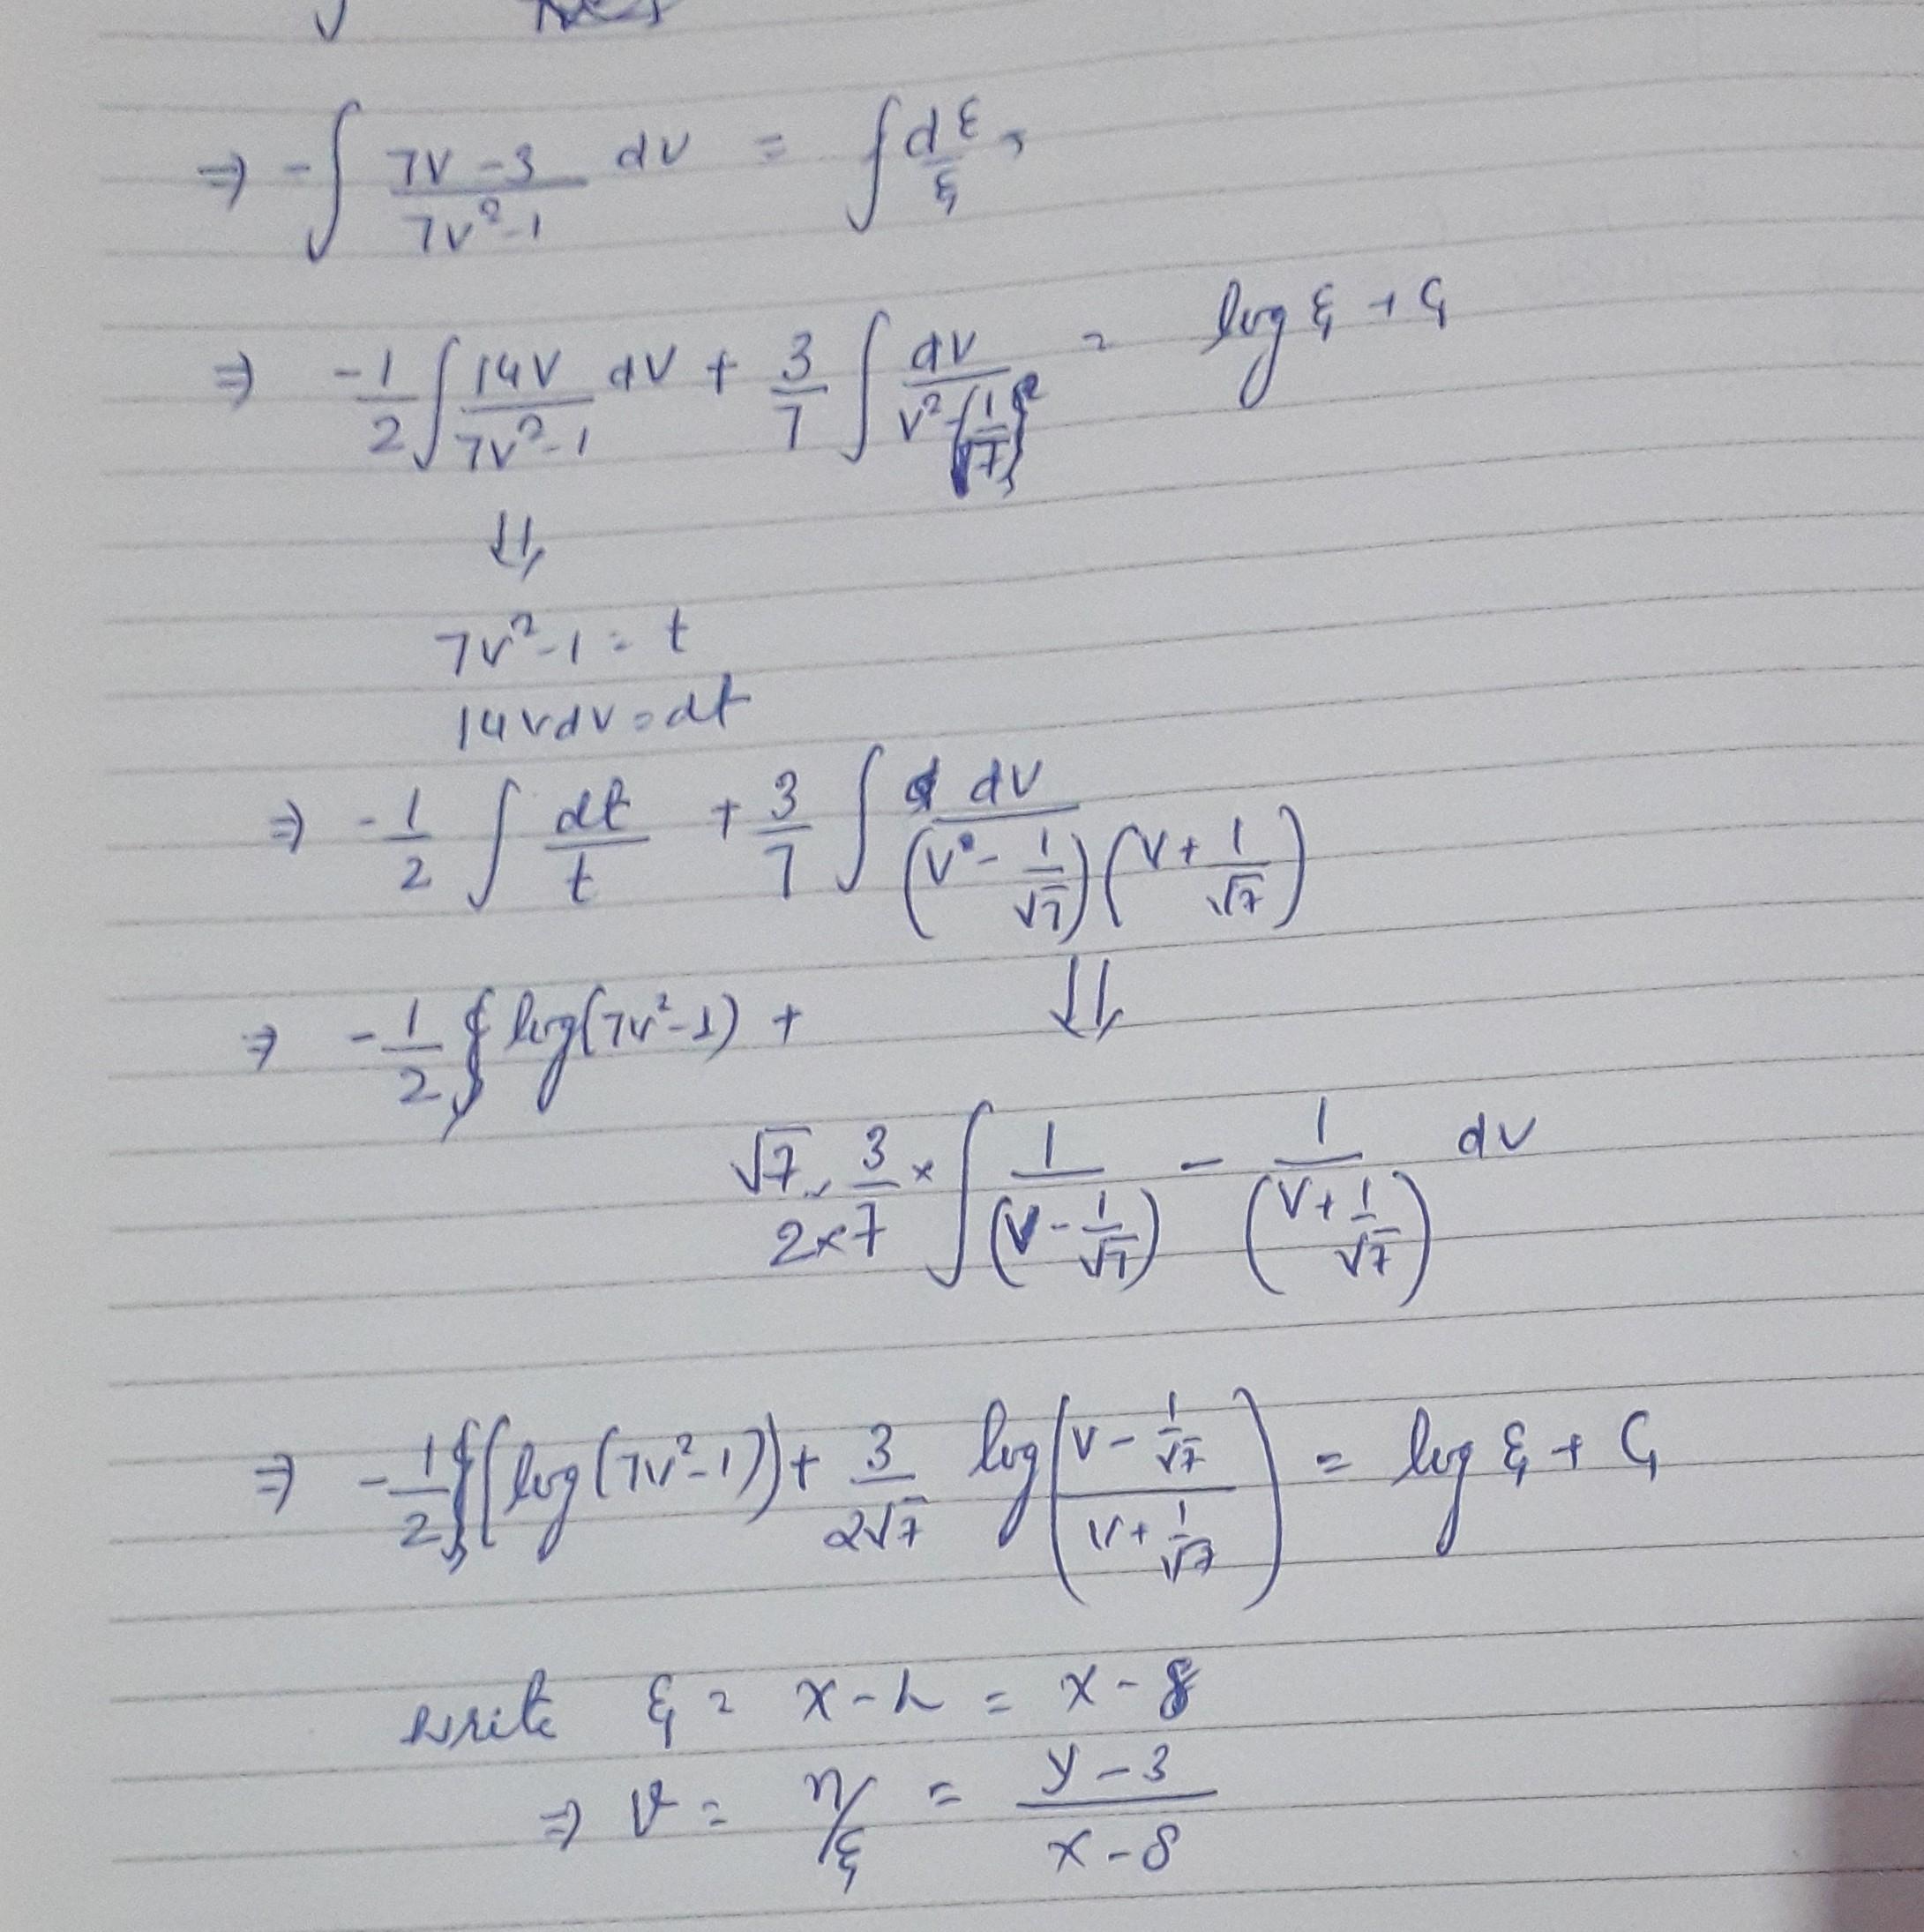 ⇒ -∫ (7v-3)/(7v²-1) dv = ∫ dξ/ξ,
⇒ -1/2 ∫ 14v/(7v²-1) dv + 3/7 ∫ dv/(v²-(1/√7)²) = log ξ + C₁
⇓
7v²-1 = t
14vdv = dt
⇒ -1/2 ∫ dt/t + 3/7 ∫ dv/((v-1/√7)(v+1/√7))
⇒ -1/2 log(7v²-1) + ⇓
√7·3/(2×7) × ∫ 1/(v-1/√7) - 1/(v+1/√7) dv
⇒ -1/2 (log(7v²-1)) + 3/(2√7) log((v-1/√7)/(v+1/√7)) = log ξ + C₁
write ξ = x-h = x-8
⇒ v = η/ξ = (y-3)/(x-8)